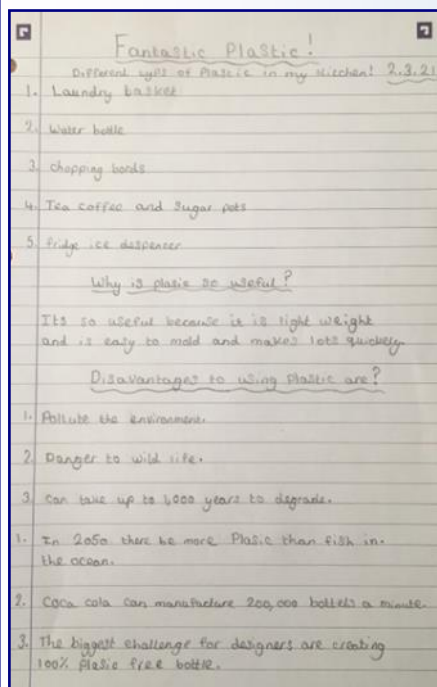 Fantastic Plastic!
Different typs of Plastic in my kitchen! 2.3.21
1. Laundry basket
2. Water bottle
3. chopping bords
4. Tea coffee and sugar pots
5. fridge ice despencer
Why is plasic so useful?
Its so useful because it is light weight
and is easy to mold and makes lots quickely.
Disavantages to using Plastic are?
1. Pollute the environment.
2. Danger to wild life.
3. Can take up to 1,000 years to degrade.
1. In 2050 there be more Plasic than fish in
the ocean.
2. Coca cola can manufacture 200,000 bottels a minute.
3. The biggest challenge for designers are creating
100% plasic free bottle.